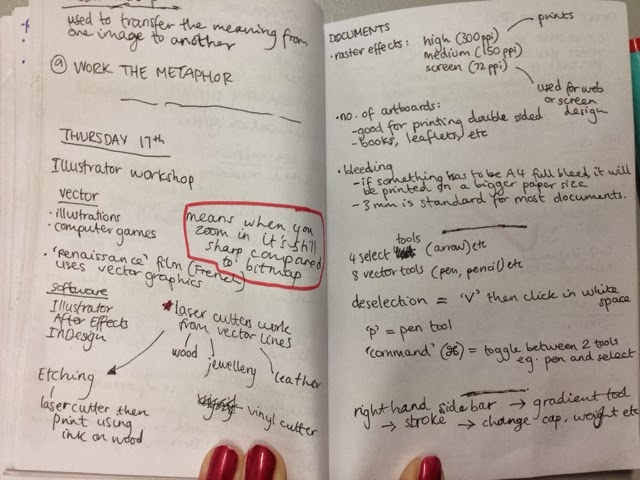 used to transfer the meaning from
one image to another
ⓐ WORK THE METAPHOR
THURSDAY 17th
Illustrator workshop
vector
· illutrations
· computer games
means when you
zoom in it's still
sharp compared
to bitmap
· 'renaissance' film (French)
uses vector graphics
software
Illustrator
After Effects
InDesign
*laser cutters work
from vector lines
wood
jewellery
leather
vinyl cutter
Etching
laser cutter then
print using
ink on wood
DOCUMENTS
· raster effects: high (300ppi)
medium (150 ppi)
screen (72ppi)
prints
used for web
or screen
design
· no. of artboards:
- good for printing double sided
- books, leaflets, etc
· bleeding
- if something has to be A4 full bleed, it will
be printed on a bigger paper size
- 3mm is standard for most documents.
4 select tools (arrow) etc
8 vector tools (pen, pencil) etc
deselection = 'V' then click in white
space
'p' = pen tool
'command' (⌘) = toggle between 2 tools
eg. pen and select
right hand side bar → gradient tool
→ stroke → change cap, weight etc